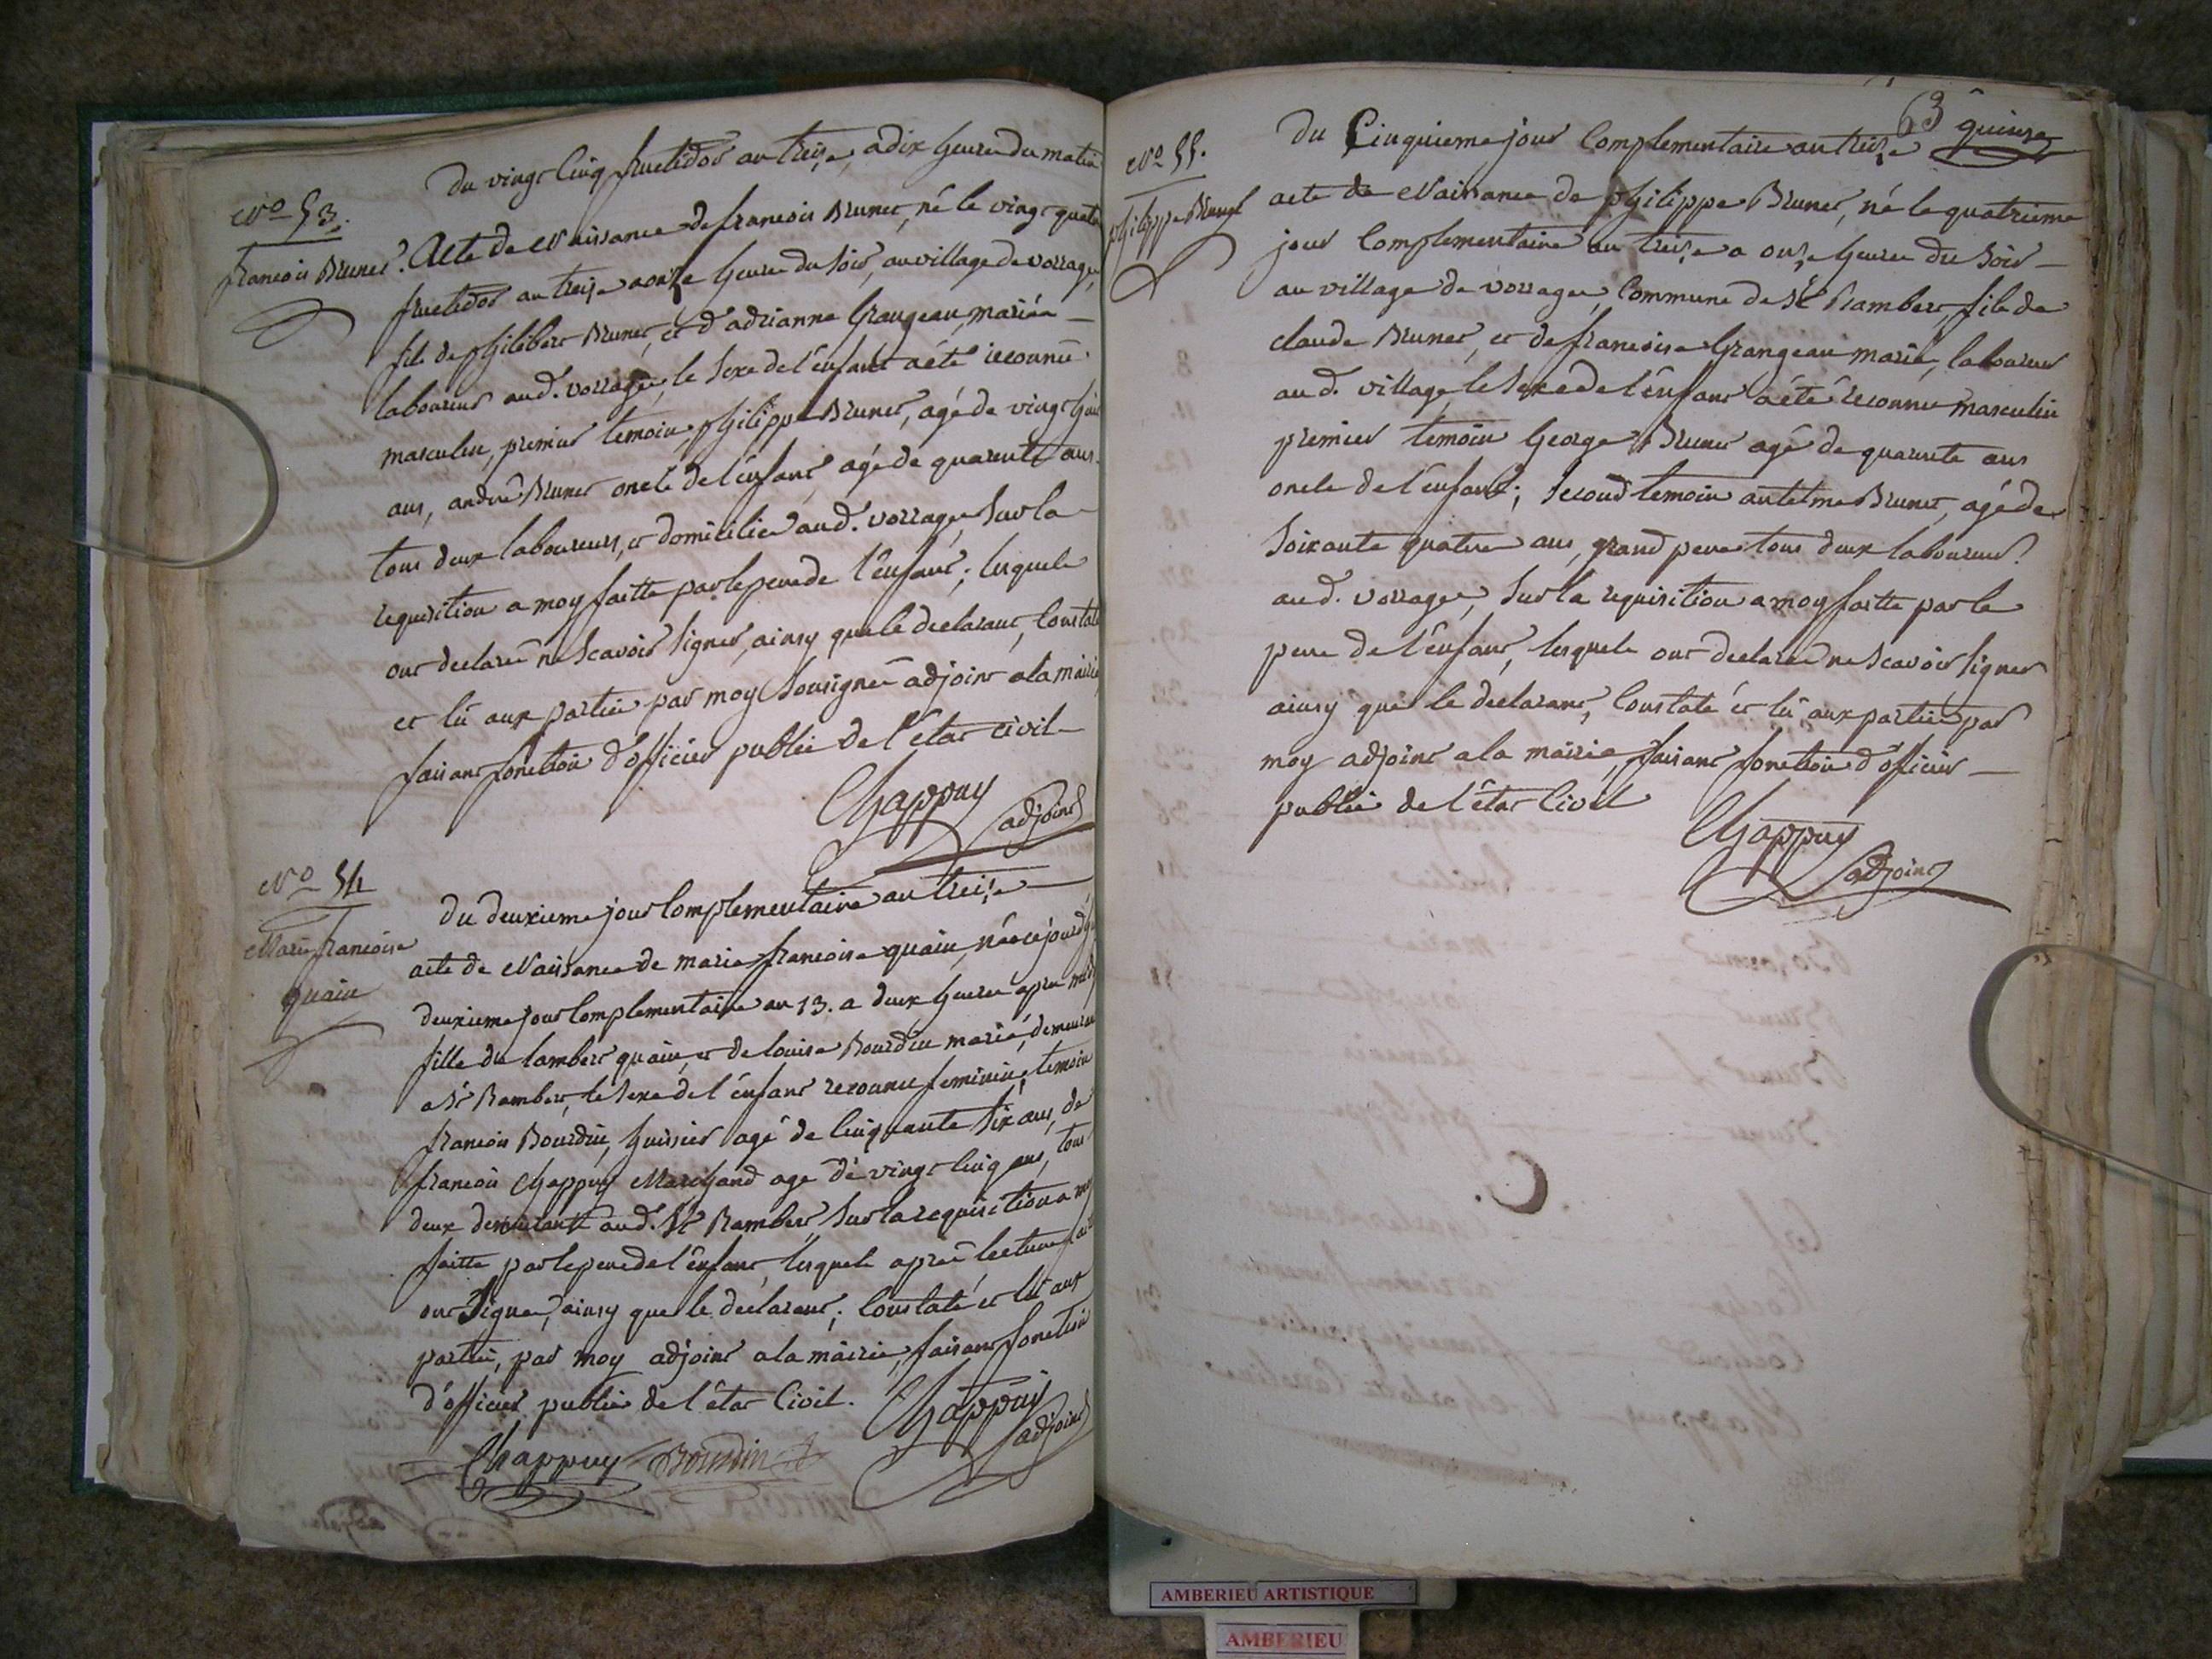 Du vingt Cinq fructidor an treize, a dix heures du matin
No 53.
francois Brunet. Acte de Naissance de francois Brunet, né le vingt quatre
fructidor an treize a onze heures du soir, au village de vorrages,
fils de philibert Brunet, et d'adrianne Grangeau, mariés
laboureur aud. vorrages, le sexe de l'enfant a été reconnu
masculin, premier temoin philippe Brunet, agé de vingt huit
ans, andré Brunet oncle de l'enfant agé de quarente ans.
tous deux laboureurs, et domiciliés aud. vorrages sur la
requisition a moy faitte par le pere de l'enfant; lesquels
ont declaré ne scavoir signer, ainsy que le declarant, Constaté
et lû aux parties par moy Sousigné adjoint a la mairie,
faisant fonction d'officier public de l'état civil
Chappuy
adjoint
No 54
Marie francoise
quain
Du deuxieme jour Complementaire an treize
acte de Naissance de marie francoise quain, née ce jourd'hui
deuxieme jour Complementaire an 13. a deux heures apres midy
fille de lambert quain, et de louise Bourdin mariés, demeurant
a St Rambert, le sexe de l'enfant reconnu feminin, temoins
francois Bourdin, huissier agé de Cinquante six ans, de
francois Chappuy Marchand agé de vingt Cinq ans, tous
deux demeurant aud. St Rambert, sur la requisition a moy
faitte par le pere de l'enfant, lesquels aprés lecture
ont Signés, ainsy que le declarant; Constaté et lû aux
parties, par moy adjoint a la mairie, faisant fonction
d'officier public de l'état Civil.
Chappuy
adjoint
Chappuy Bourdin
63 quinze
No 55.
philippe Brunet
Du Cinquieme jour Complementaire an treize
acte de Naissance de philippe Brunet, né le quatrieme
jour Complementaire an treize a onze heures du soir
au village de vorrages, Commune de St Rambert, fils de
claude Brunet, et de francoise Grangeau mariés, laboureur
aud. village, le sexe de l'enfant a été reconnu masculin
premier temoin George Brunet agé de quarente ans
oncle de l'enfant; second temoin antelme Brunet, agé de
soixante quatre ans, grand pere tous deux laboureurs
aud. vorrages, sur la requisition a moy faitte par le
pere de l'enfant, lesquels ont declaré ne scavoir signer
ainsy que le declarant, Constaté et lû aux parties par
moy adjoint a la mairie, faisant fonction d'officier
public de l'état Civil
Chappuy
adjoint
AMBERIEU ARTISTIQUE
AMBERIEU